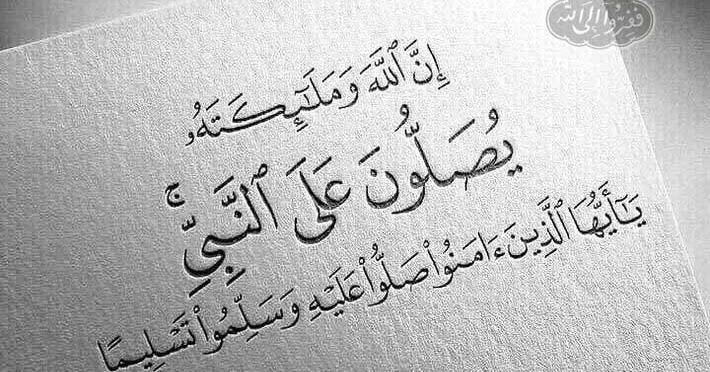 ففروا إلى الله
إِنَّ ٱللَّهَ وَمَلَـٰٓئِكَتَهُۥ
يُصَلُّونَ عَلَى ٱلنَّبِيِّ ۚ
يَـٰٓأَيُّهَا ٱلَّذِينَ ءَامَنُوا۟ صَلُّوا۟ عَلَيْهِ وَسَلِّمُوا۟ تَسْلِيمًا